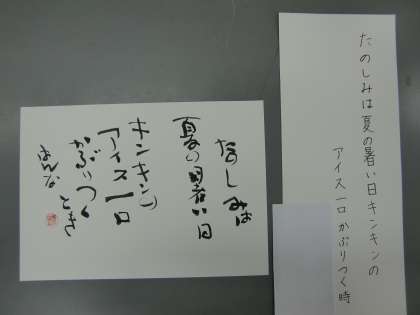 たのしみは夏の暑い日キンキンの
アイス一口かぶりつく時
たのしみは
夏の暑い日
キンキンの
アイス一口
かぶりつく
とき
はんな